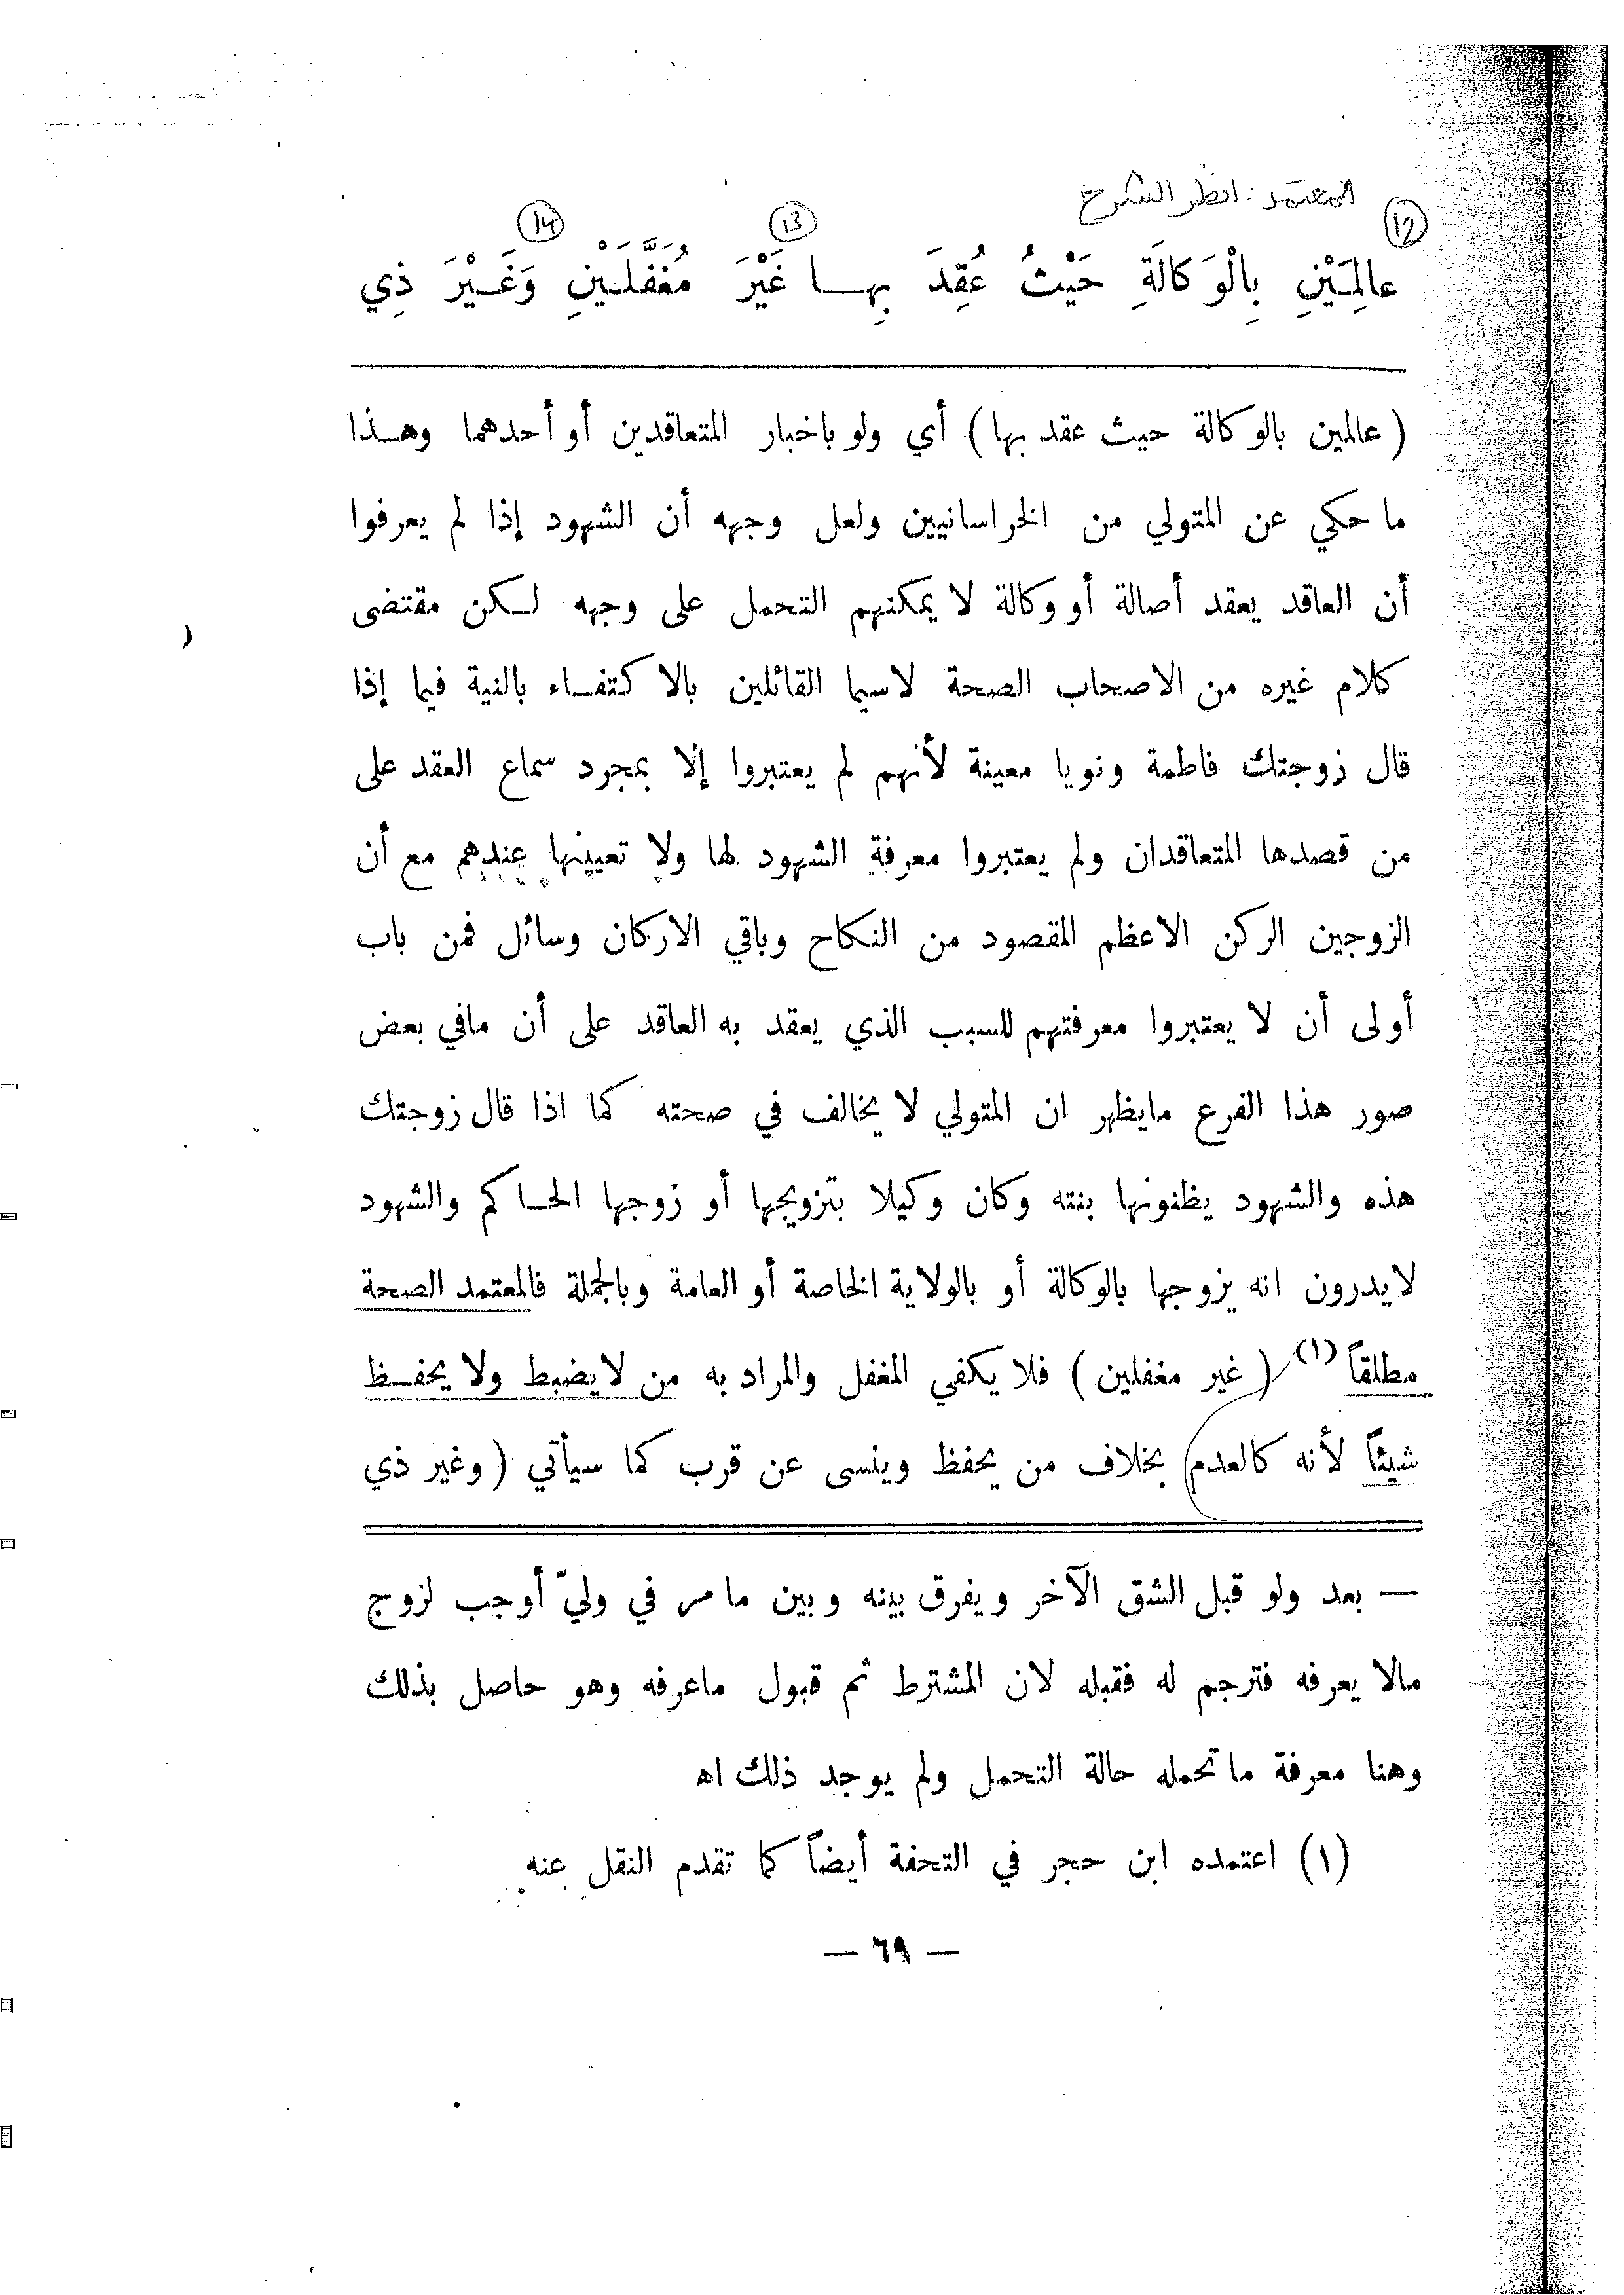 المعتمد : انظر الشرح
12 13 14
عالِمَيْنِ بِالْوَكالَةِ حَيْثُ عُقِدَ بِهـا غَيْرَ مُغَفَّلَيْنِ وَغَيْرَ ذِي
( عالمين بالوكالة حيث عقد بها ) أي ولو باخبار المتعاقدين أو أحدهما وهـذا
ما حكي عن المتولي من الخراسانيين ولعل وجهه أن الشهود إذا لم يعرفوا
أن العاقد يعقد أصالة أو وكالة لا يمكنهم التحمل على وجهه لـكن مقتضى
كلام غيره من الاصحاب الصحة لاسيما القائلين بالاكتفـاء بالنية فيما إذا
قال زوجتك فاطمة ونويا معينة لأنهم لم يعتبروا إلا بمجرد سماع العقد على
من قصدها المتعاقدان ولم يعتبروا معرفة الشهود لها ولا تعيينها عندهم مع أن
الزوجين الركن الاعظم المقصود من النكاح وباقي الاركان وسائل فمن باب
أولى أن لا يعتبروا معرفتهم للسبب الذي يعقد به العاقد على أن مافي بعض
صور هذا الفرع مايظهر ان المتولي لا يخالف في صحته كما اذا قال زوجتك
هذه والشهود يظنونها بنته وكان وكيلا بتزويجها أو زوجها الحـاكم والشهود
لايدرون انه يزوجها بالوكالة أو بالولاية الخاصة أو العامة وبالجملة فالمعتمد الصحة
مطلقاً (١) ( غير مغفلين ) فلا يكفي المغفل والمراد به من لايضبط ولا يحفـظ
شيئاً لأنه كالعدم بخلاف من يحفظ وينسى عن قرب كما سيأتي ( وغير ذي
— بعد ولو قبل الشق الآخر ويفرق بينه وبين ما مر في وليّ أوجب لزوج
مالا يعرفه فترجم له فقبله لان المشترط ثم قبول ماعرفه وهو حاصل بذلك
وهنا معرفة ما تحمله حالة التحمل ولم يوجد ذلك اه
(١) اعتمده ابن حجر في التحفة أيضاً كما تقدم النقل عنه
— ٦٩ —